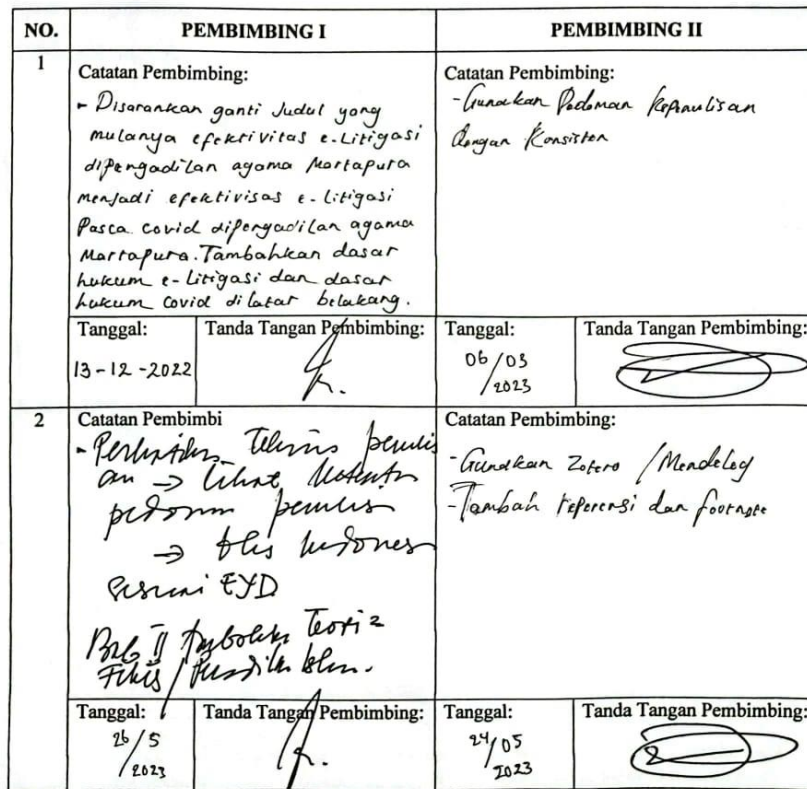 NO.
PEMBIMBING I
PEMBIMBING II
1
Catatan Pembimbing:
- Disarankan ganti Judul yang
mulanya efektivitas e-Litigasi
dipengadilan agama Martapura
menjadi efektivisas e-litigasi
Pasca covid dipengadilan agama
Martapura. Tambahkan dasar
hukum e-Litigasi dan dasar
hukum Covid di latar belakang.
Catatan Pembimbing:
- Gunakan Pedoman Kepenulisan
dengan Konsisten
Tanggal:
13-12-2022
Tanda Tangan Pembimbing:
Tanggal:
06/03
2023
Tanda Tangan Pembimbing:
2
Catatan Pembimbi
- Perhatikan Teknis penulis
an → lihat
pedoman penulis
→
sesuai EYD
Bab II Teori2
Fikih /
Catatan Pembimbing:
- Gunakan Zotero / Mendeley
- Tambah referensi dan footnote
Tanggal:
26/5
2023
Tanda Tangan Pembimbing:
Tanggal:
24/05
2023
Tanda Tangan Pembimbing: